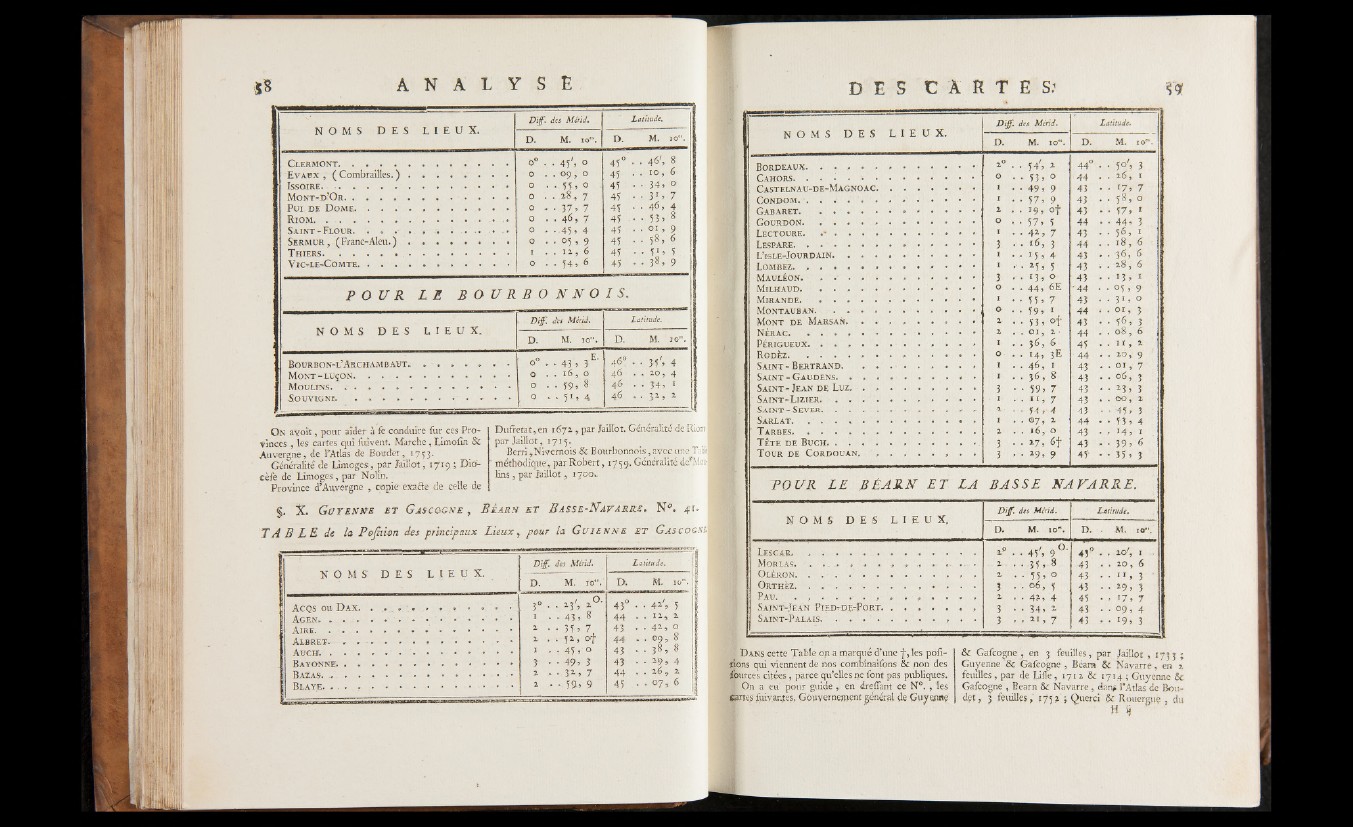 58 ANALYSE
NOMS DES LIEUX. Diff. des Mérid. Latitude.
D. M. 10". D. M. 10".
CLERMONT. 0° . . 45', 0 45° . . 46', 8
EVAUX , (Combrailles.) 0 . . 09, 0 45 . . 10, 6
ISSOIRE. 0 . . 55, 0 45 . . 34, 0
MONT-D'OR. 0 . . 28, 7 45 . . 31, 7
PUI DE DOME. 0 . . 37, 7 45 . . 46, 4
RIOM. 0 . . 46, 7 45 . . 53, 8
SAINT-FLOUR. 0 . . 45, 4 45 . . 01, 9
SERMUR , (Franc-Aleu.) 0 . . 05, 9 45 . . 58, 6
THIERS. 1 . . 12, 6 45 . . 51, 5
VIC-LE-COMTE. 0 . . 54, 6 45 . . 38, 9
POUR LE BOURBONNOIS.
NOMS DES LIEUX. Diff. des Mérid. Latitude.
D. M. 10". D. M. 10".
BOURBON-L'ARCHAMBAUT. 0° . . 43, 3 E. 46° . . 35', 4
MONT-LUÇON. 0 . . 16, 0 46 . . 20, 4
MOULINS. 0 . . 59, 8 46 . . 34, 1
SOUVIGNE. 0 . . 51, 4 46 . . 32, 2
ON avoit, pour aider à se conduire sur ces Pro-
vinces, les cartes qui suivent. Marche, Limosin &
Auvergne, de l'Atlas de Boudet, 1753.
Généralité de Limoges, par Jaillot, 1719 ; Dio-
cèse de Limoges, par Nolin.
Province d'Auvergne , copie exacte de celle de
Dufretat, en 1672, par Jaillot. Généralité de Riom
par Jaillot, 1715.
Berri, Nivernois & Bourbonnois, avec une
méthodique, par Robert, 1759. Généralité de
lins, par Jaillot, 1700.
§. X. GUYENNE ET GASCOGNE, BÉARN ET BASSE-NAVARRE. N°. 41.
TABLE de la Position des principaux Lieux, pour la GUIENNE ET GASCOGNE
NOMS DES LIEUX. Diff. des Mérid. Latitude.
D. M. 10". D. M. 10".
ACQS ou DAX. 3° . . 23', 2 O. 43° . . 42', 5
AGEN. 1 . . 43, 8 44 . . 12, 2
AIRE. 2 . . 35, 7 43 . . 42, 0
ALBRET. 2 . . 52, 0† 44 . . 09, 8
AUCH. 1 . . 45, 0 43 . . 38, 8
BAYONNE. 3 . . 49, 3 43 . . 29, 4
BAZAS. 2 . . 32, 7 44 . . 26, 2
BLAYE. 2 . . 59, 9 45 . . 07, 6
DES CARTES. 59
NOMS DES LIEUX. Diff. des Mérid. Latitude.
D. M. 10". D. M. 10".
BORDEAUX. 2° . . 54', 2 44° . . 50', 3
CAHORS. 0 . . 53, 0 44 . . 26, 1
CASTELNAU-DE-MAGNOAC. 1 . . 49, 9 43 . . 17, 7
CONDOM. 1 . . 57, 9 43 . . 58, 0
GABARET. 2 . . 19, 0† 43 . . 57, 1
GOURDON. 0 . . 57, 5 44 . . 44, 3
LECTOURE. 1 . . 42, 7 43 . . 56, 1
LESPARE. 3 . . 16, 3 44 . . 18, 6
L'ISLE-JOURDAIN. 1 . . 15, 4 43 . . 36, 6
LOMBEZ. 1 . . 25, 5 43 . . 28, 6
MAULÉON. 3 . . 13, 0 43 . . 13, 1
MILHAUD. 0 . . 44, 6E 44 . . 05, 9
MIRANDE. 1 . . 55, 7 43 . . 31, 0
MONTAUBAN. 0 . . 59, 1 44 . . 01, 3
MONT DE MARSAN. 2 . . 53, 0† 43 . . 56, 3
NÉRAC. 2 . . 01, 2 44 . . 08, 6
PÉRIGUEUX. 1 . . 36, 6 45 . . 11, 2
RODÈZ. 0 . . 14, 3E 44 . . 20, 9
SAINT-BERTRAND. 1 . . 46, 1 43 . . 01, 7
SAINT-GAUDENS. 1 . . 36, 8 43 . . 06, 3
SAINT-JEAN DE LUZ. 3 . . 59, 7 43 . . 23, 3
SAINT-LIZIER. 1 . . 11, 7 43 . . 00, 2
SAINT-SEVER. 2 . . 54, 4 43 . . 45, 3
SARLAT. 1 . . 07, 2 44 . . 53, 4
TARBES. 2 . . 16, 0 43 . . 14, 1
TÊTE DE BUCH. 3 . . 27, 6† 43 . . 39, 6
TOUR DE CORDOUAN. 3 . . 29, 9 45 . . 35, 3
POUR LE BÉARN ET LA BASSE NAVARRE.
NOMS DES LIEUX. Diff. des Mérid. Latitude.
D. M. 10". D. M. 10".
LESCAR. 2° . . 45', 9 O. 43° . . 20', 1
MORLAS. 2 . . 35, 8 43 . . 20, 6
OLÉRON. 2 . . 55, 0 43 . . 11, 3
ORTHÈZ. 3 . . 06, 5 43 . . 29, 3
PAU. 2 . . 42, 4 45 . . 17, 7
SAINT-JEAN PIED-DE-PORT. 3 . . 34, 2 43 . . 09, 4
SAINT-PALAIS. 3 . . 21, 7 43 . . 19, 3
DANS cette Table on a marqué d'une †, les posi-
tions qui viennent de nos combinaisons & non des
sources citées, parce qu'elles ne sont pas publiques.
On a eu pour guide, en dressant ce N°., les
cartes suivantes. Gouvernement général de Guyenne
& Gascogne, en 3 feuilles, par Jaillot, 1733 ;
Guyenne & Gascogne, Béarn & Navarre, en 2
feuilles, par de Lisle, 1712 & 1714 ; Guyenne &
Gascogne, Bearn & Navarre, dans l'Atlas de Bou-
det, 3 feuilles, 1752 ; Querci & Rouergue, du
H ij